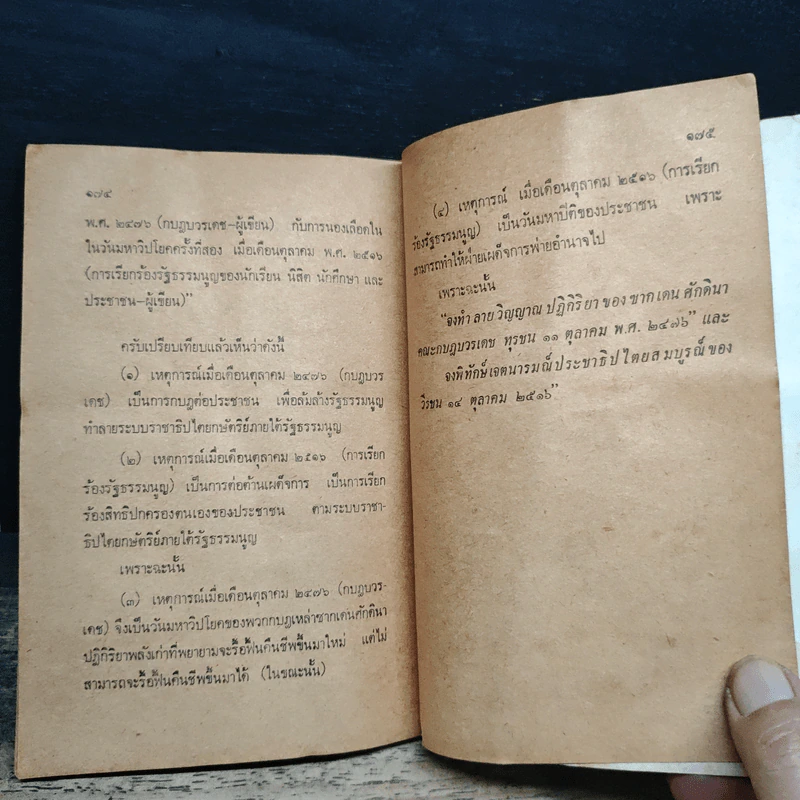 ๑๗๔
พ.ศ. ๒๔๗๖ (กบฎบวรเดช–ผู้เขียน) กับการนองเลือดใน
ในวันมหาวิปโยคครั้งที่สอง เมื่อเดือนตุลาคม พ.ศ. ๒๕๑๖
(การเรียกร้องรัฐธรรมนูญของนักเรียน นิสิต นักศึกษา และ
ประชาชน–ผู้เขียน)”
ครับเปรียบเทียบแล้วเห็นว่าดังนี้
(๑) เหตุการณ์เมื่อเดือนตุลาคม ๒๔๗๖ (กบฎบวร
เดช) เป็นการกบฎต่อประชาชน เพื่อล้มล้างรัฐธรรมนูญ
ทำลายระบบราชาธิปไตยกษัตริย์ภายใต้รัฐธรรมนูญ
(๒) เหตุการณ์เมื่อเดือนตุลาคม ๒๕๑๖ (การเรียก
ร้องรัฐธรรมนูญ) เป็นการต่อต้านเผด็จการ เป็นการเรียก
ร้องสิทธิปกครองตนเองของประชาชน ตามระบบราชา-
ธิปไตยกษัตริย์ภายใต้รัฐธรรมนูญ
เพราะฉะนั้น
(๓) เหตุการณ์เมื่อเดือนตุลาคม ๒๔๗๖ (กบฎบวร-
เดช) จึงเป็นวันมหาวิปโยคของพวกกบฎเหล่าซากเดนศักดินา
ปฏิกิริยาพลังเก่าที่พยายามจะรื้อฟื้นคืนชีพขึ้นมาใหม่ แต่ไม่
สามารถจะรื้อฟื้นคืนชีพขึ้นมาได้ (ในขณะนั้น)
๑๗๕
(๔) เหตุการณ์ เมื่อเดือนตุลาคม ๒๕๑๖ (การเรียก
ร้องรัฐธรรมนูญ) เป็นวันมหาปีติของประชาชน เพราะ
สามารถทำให้ฝ่ายเผด็จการพ่ายอำนาจไป
เพราะฉะนั้น
“จงทำลายวิญญาณปฏิกิริยาของซากเดนศักดินา
คณะกบฎบวรเดช ทุรชน ๑๑ ตุลาคม พ.ศ. ๒๔๗๖” และ
จงพิทักษ์เจตนารมณ์ประชาธิปไตยสมบูรณ์ของ
วีรชน ๑๔ ตุลาคม ๒๕๑๖”